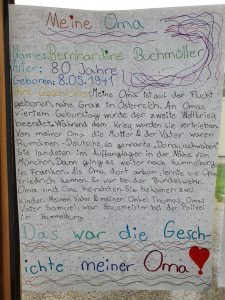 Meine Oma
Name: Bernhardine Buchmoller
Alter: 80 Jahre
Geboren: 8.05.1941
Ihre Geschichte: Meine Oma ist auf der Flucht
geboren, nähe Graz in Österreich. An Omas
viertem Geburtstag wurde der zweite Weltkrieg
beendet. Während dem Krieg wurden sie vertrieben.
Von meiner Oma die Mutter & der Vater waren
Rumänen-Deutsche, so genannte, Donauschwaben
Sie landeten im Auffanglager in der Nähe von
München. Dann ging es weiter nach Hammelburg
in Franken. Als Oma dort ankam, lernte sie Opa
Friedrich kennen. Er war bei der Bundeswehr.
Oma und Opa heirateten. Sie bekamen zwei
Kinder. Meinen Vater & meinen Onkel Thomas. Omas
Vater Samuel, war Hausmeister bei der Polizei
in Hammelburg.
Das war die Gesch-
ichte meiner Oma!